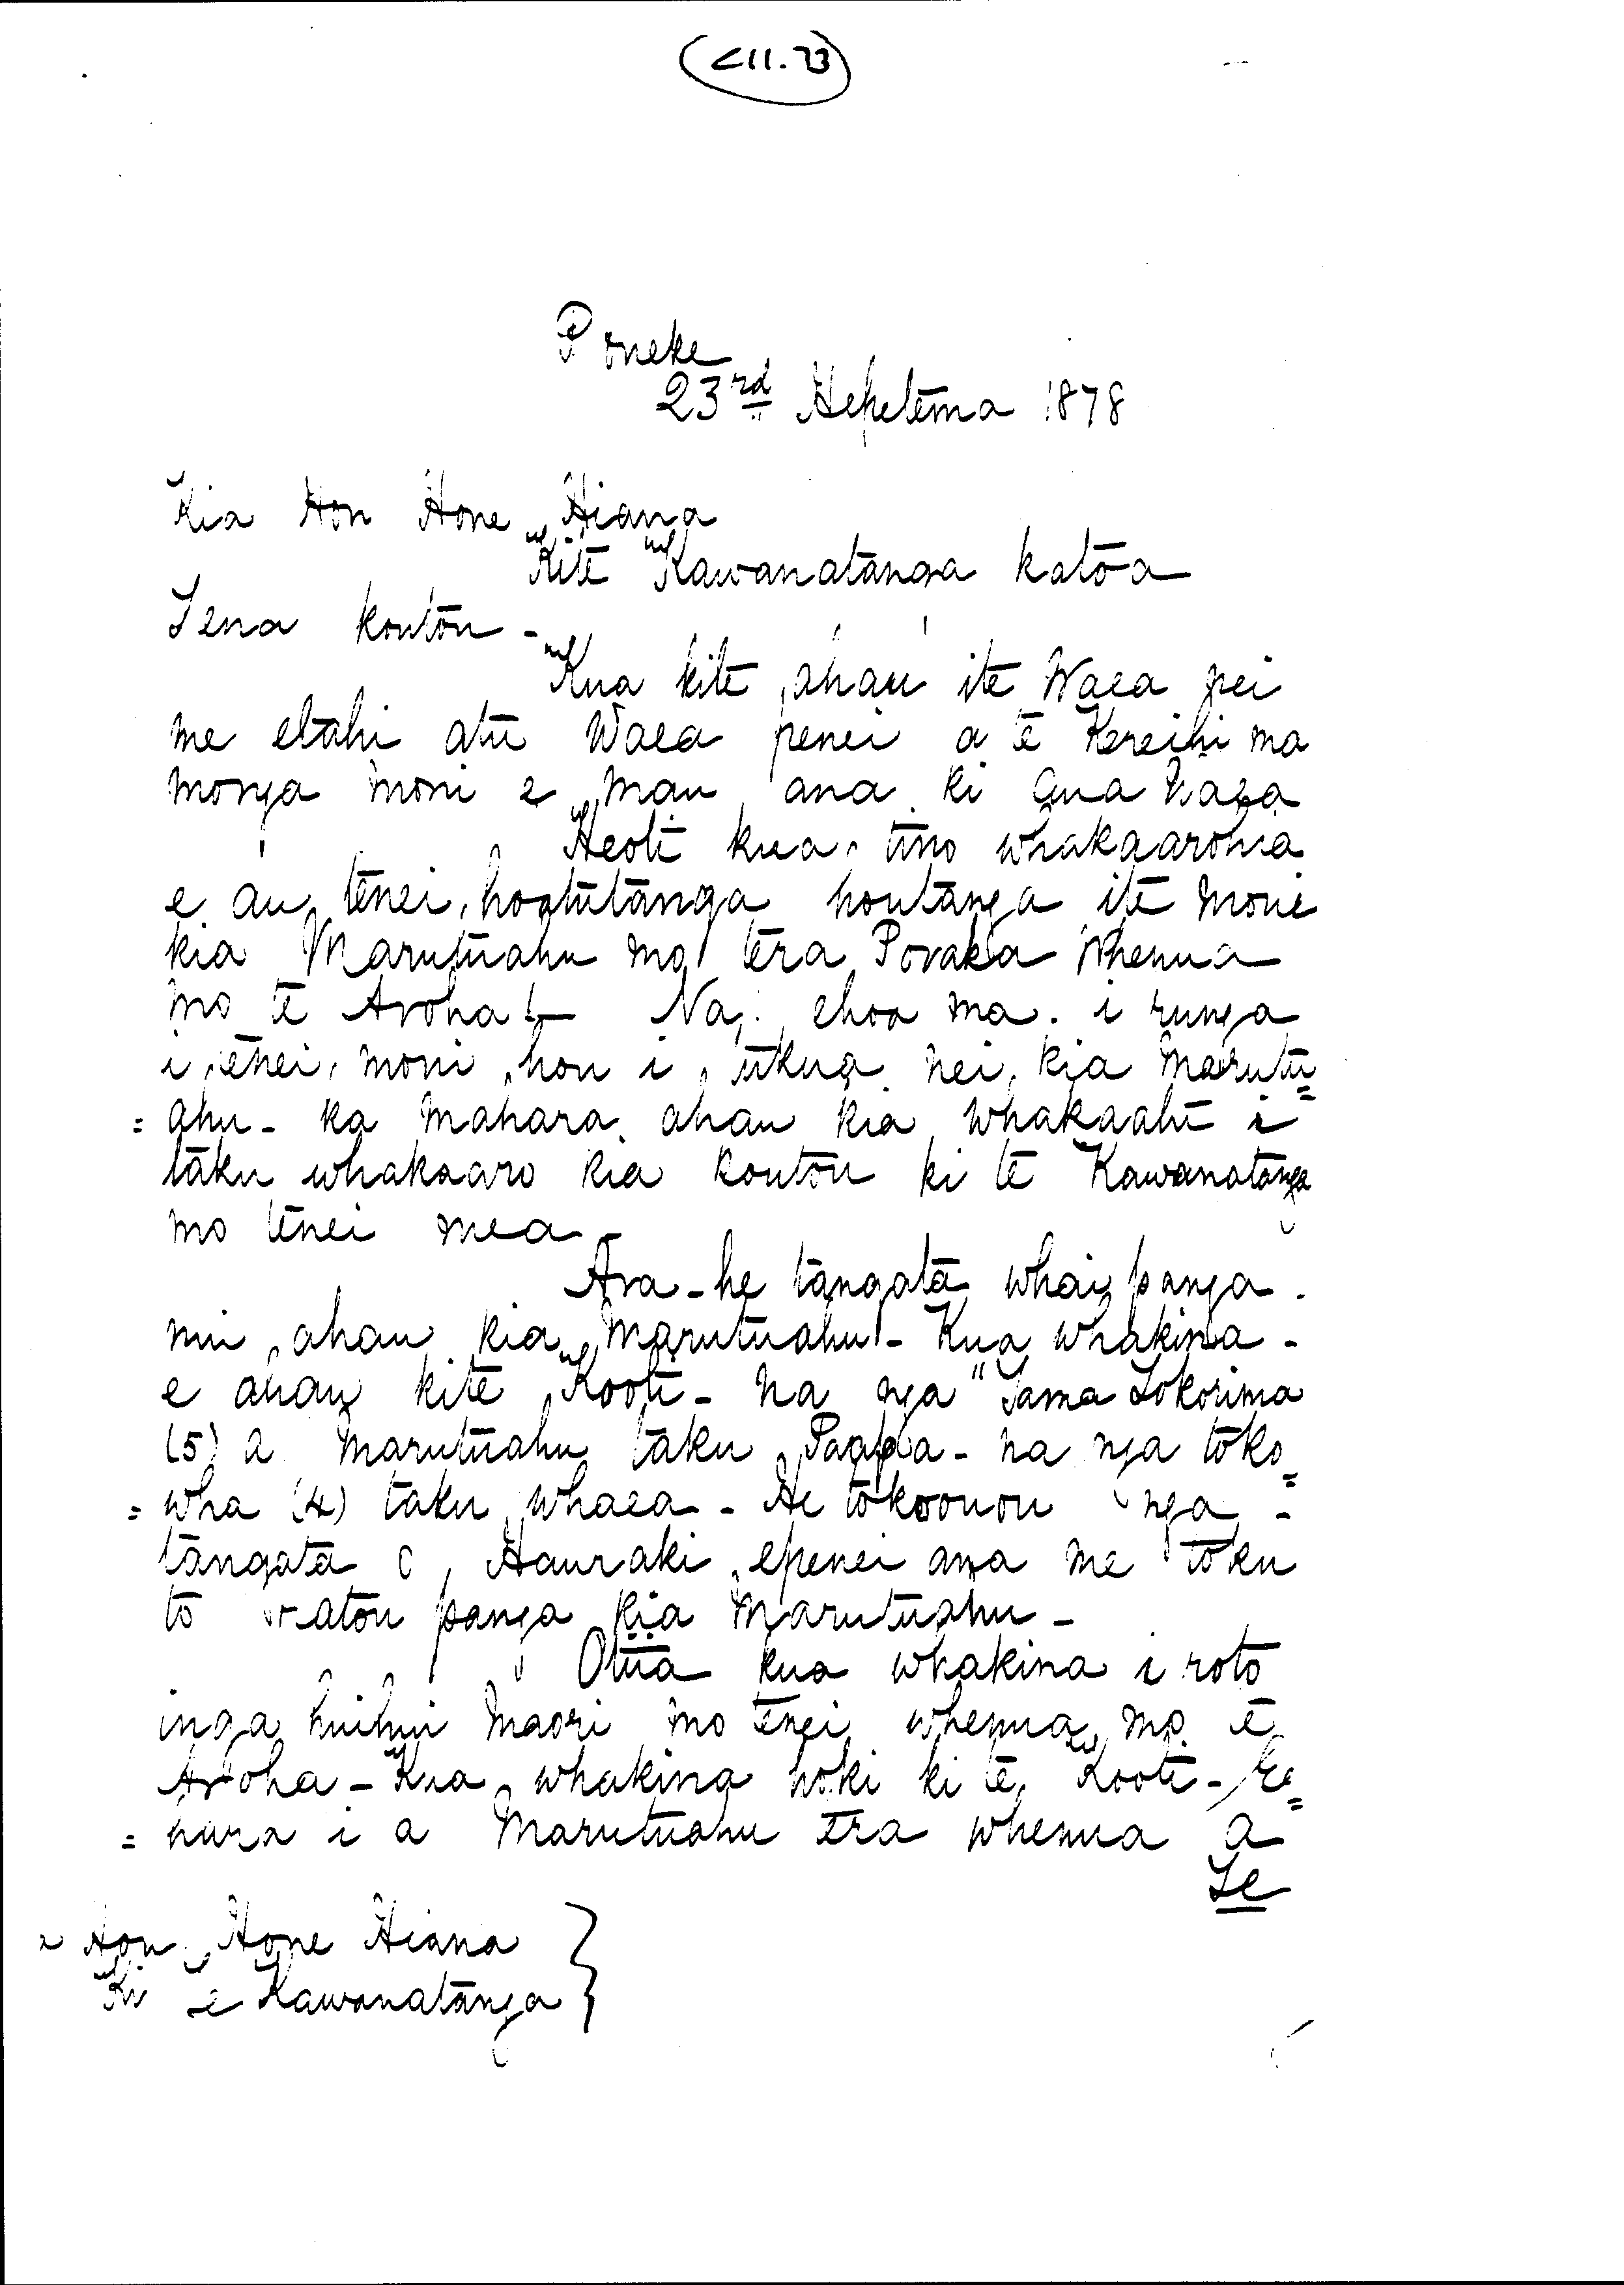 (C11.73)
Poneke
23rd Hepetema 1878
Kia Hon Hone Hiana
Kite Kawanatanga katoa
Tena koutou -
Kua kite ahau ite Waea nei
me etahi atu Waea penei a te Kereihi ma
monga moni e mau ana ki aua Waea
Heoti kua tino whakaarohia
e au tenei hoatutanga houtanga ite moni
kia Marutuahu mo tera Poraka Whenua
mo te Aroha - Na, ehoa ma. i runga
i enei moni hou i ukua nei, kia Marutu=
=ahu - ka Mahara ahau kia whakaatu i
taku whakaaro kia koutou ki te Kawanatanga
mo tenei mea -
Ara - he tangata whai panga
nui ahau kia Marutuahu - Kua whakina -
e ahau kite Kooti - Na nga Tama Tokorima
(5) a Marutuahu taku Paapa - na nga toko=
=wha (4) taku whaea - He tokoouou nga -
tangata o Hauraki epenei ana me toku
to ratou panga kia Marutuahu -
Otiia kua whakina i roto
inga huihui Maori mo tenei whenua mo te
Aroha - Kua whakina hoki ki te Kooti - Ee=
=hara i a Marutuahu tera whenua a
Te
a Hon Hone Hiana
Ki te Kawanatanga }